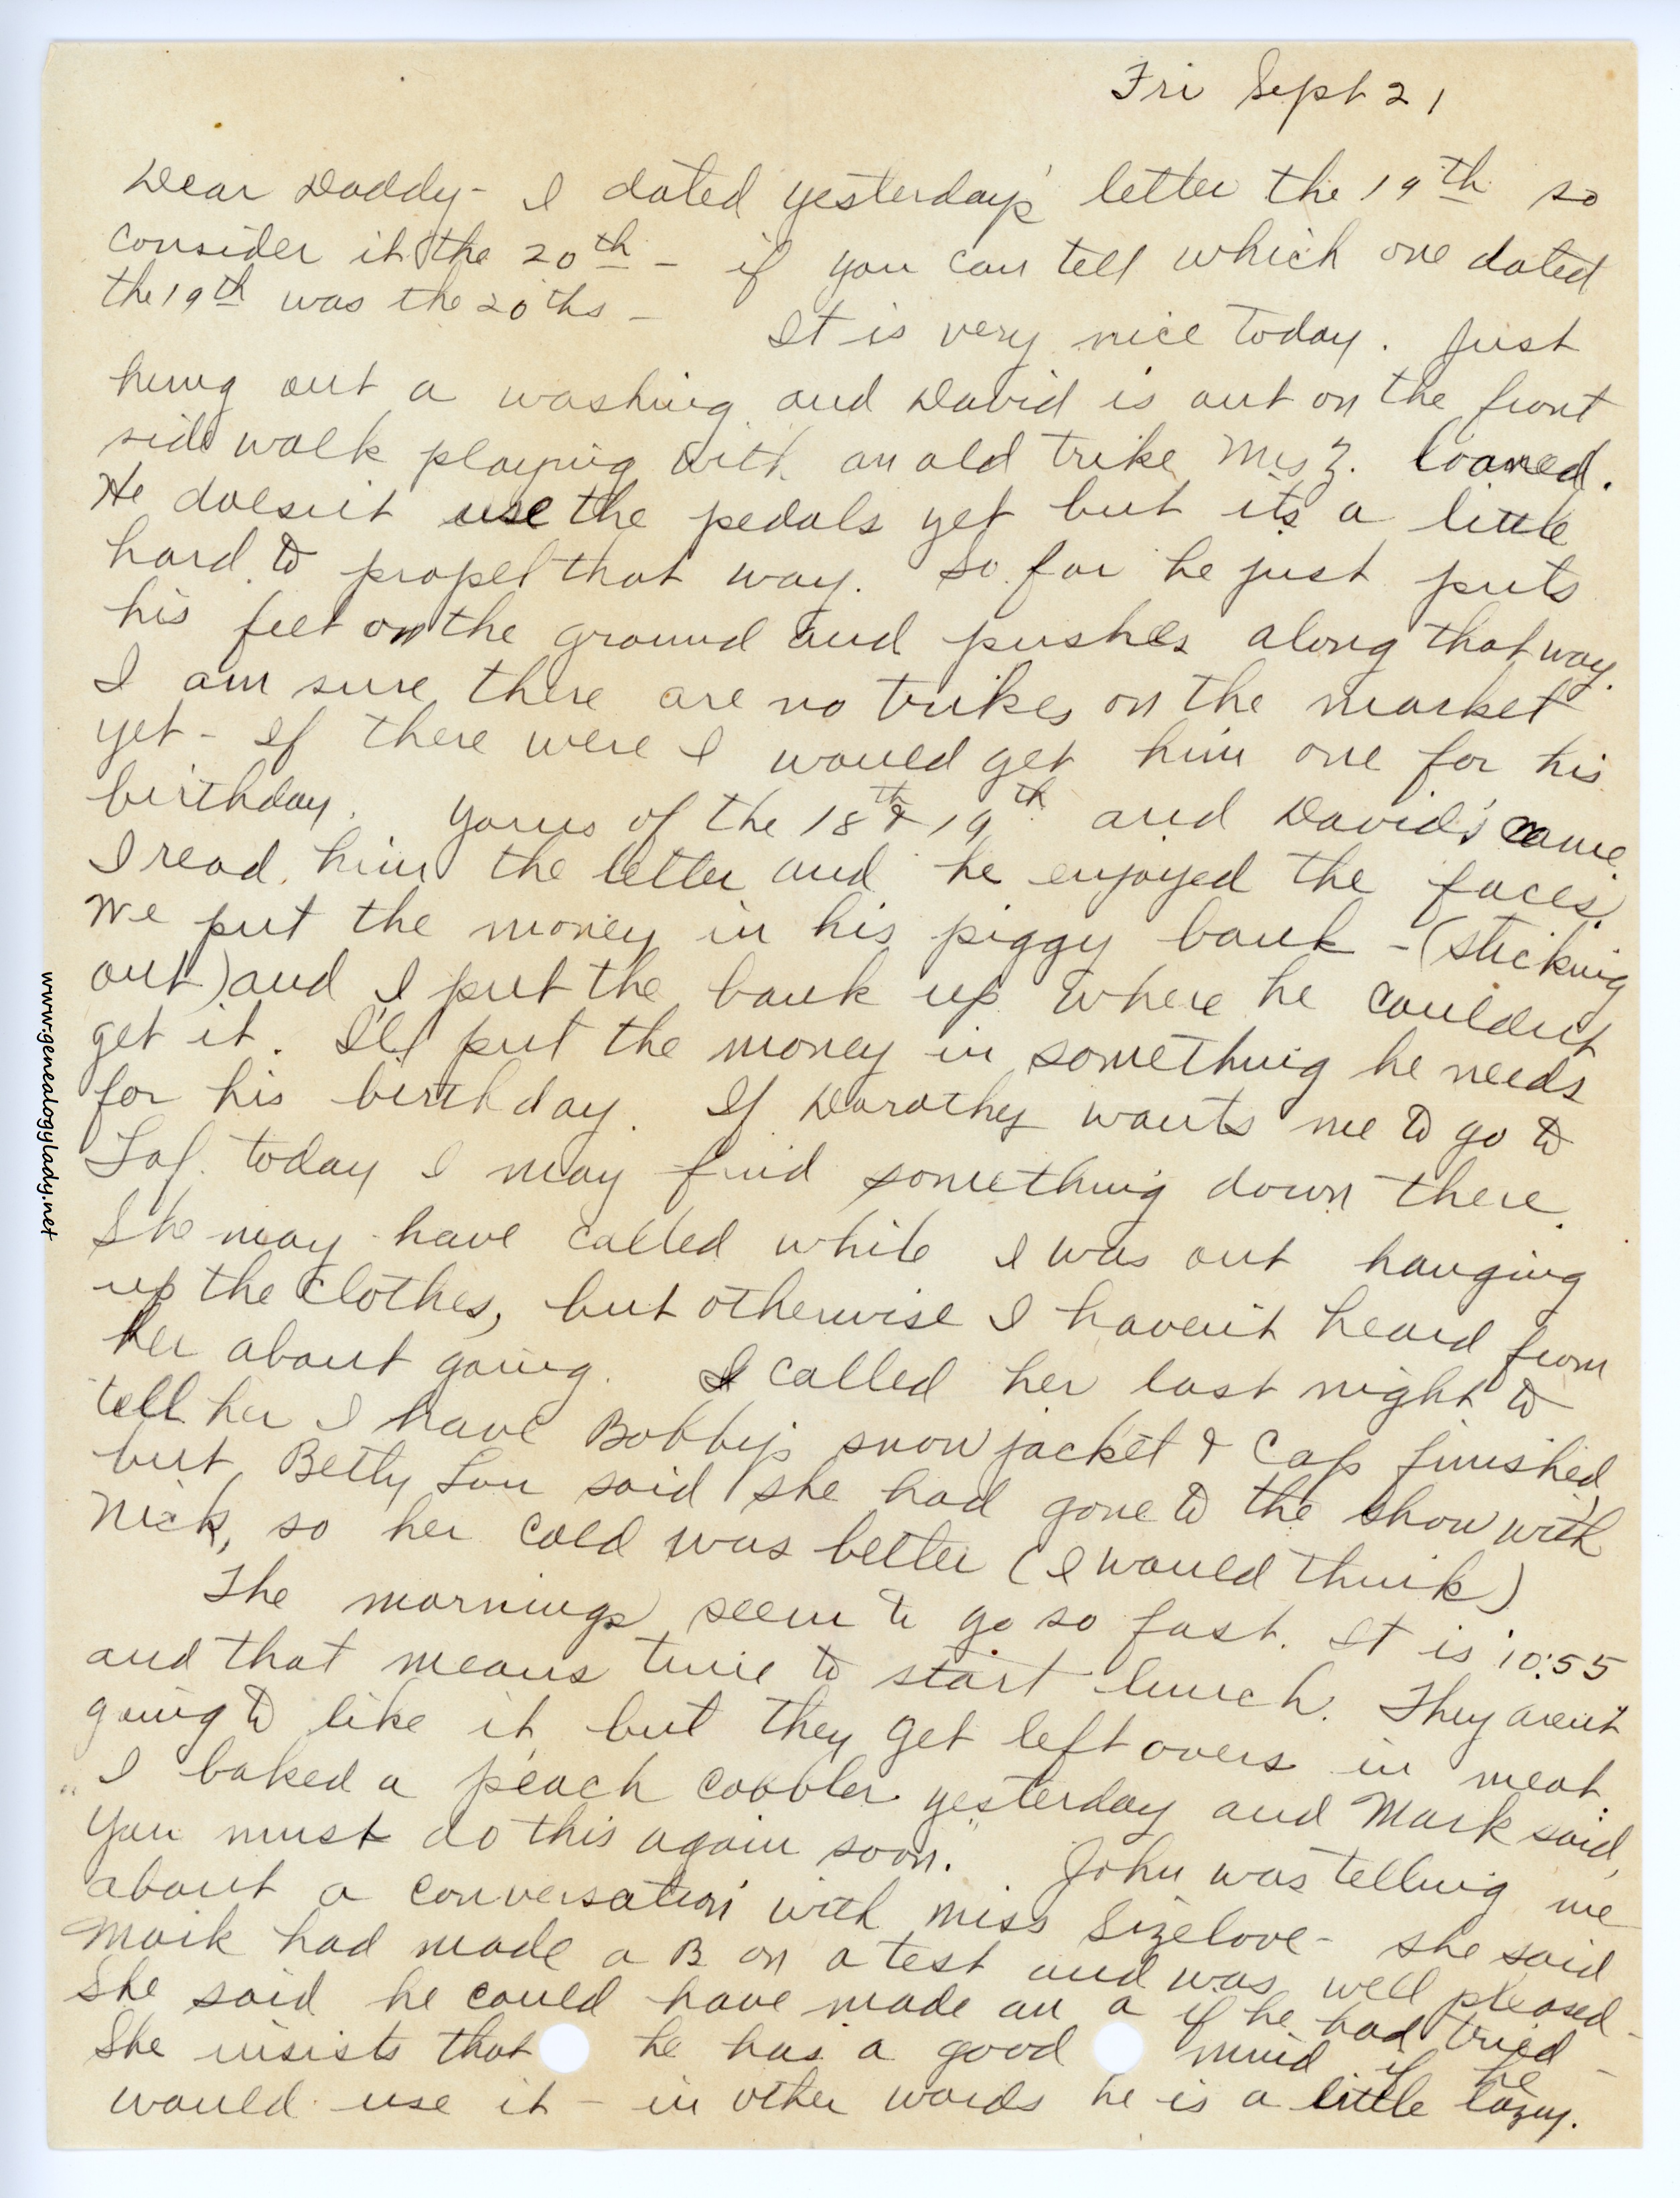 Fri Sept 21
Dear Daddy - I dated yesterday's letter the 19th so
consider it the 20th - if you can tell which one dated
the 19th was the 20ths -
It is very nice today. Just
hung out a washing and David is out on the front
side walk playing with an old trike Mrs Z. loaned.
He doesn't use the pedals yet but its a little
hard to propel that way. So far he just puts
his feet on the ground and pushes along that way.
I am sure there are no trikes on the market
yet - If there were I would get him one for his
birthday. Yours of the 18th & 19th and David's came.
I read him the letter and he enjoyed the faces.
We put the money in his piggy bank - (sticking
out) and I put the bank up where he couldn't
get it. I'll put the money in something he needs
for his birthday. If Dorothy wants me to go to
Laf. today I may find something down there.
She may have called while I was out hanging
up the clothes, but otherwise I haven't heard from
her about going. I called her last night to
tell her I have Bobby's snow jacket & cap finished,
but Betty Lou said she had gone to the show with
Nick, so her cold was better (I would think)
The mornings seem to go so fast. It is 10:55
and that means time to start lunch. They aren't
going to like it but they get left overs in meat.
I baked a peach cobbler yesterday and Mark said,
"You must do this again soon." John was telling me
about a conversation with Miss Sizelove - she said
Mark had made a B on a test and was well pleased -
She said he could have made an a if he had tried -
She insists that he has a good mind if he
would use it - in other words he is a little lazy.
www.genealogylady.net